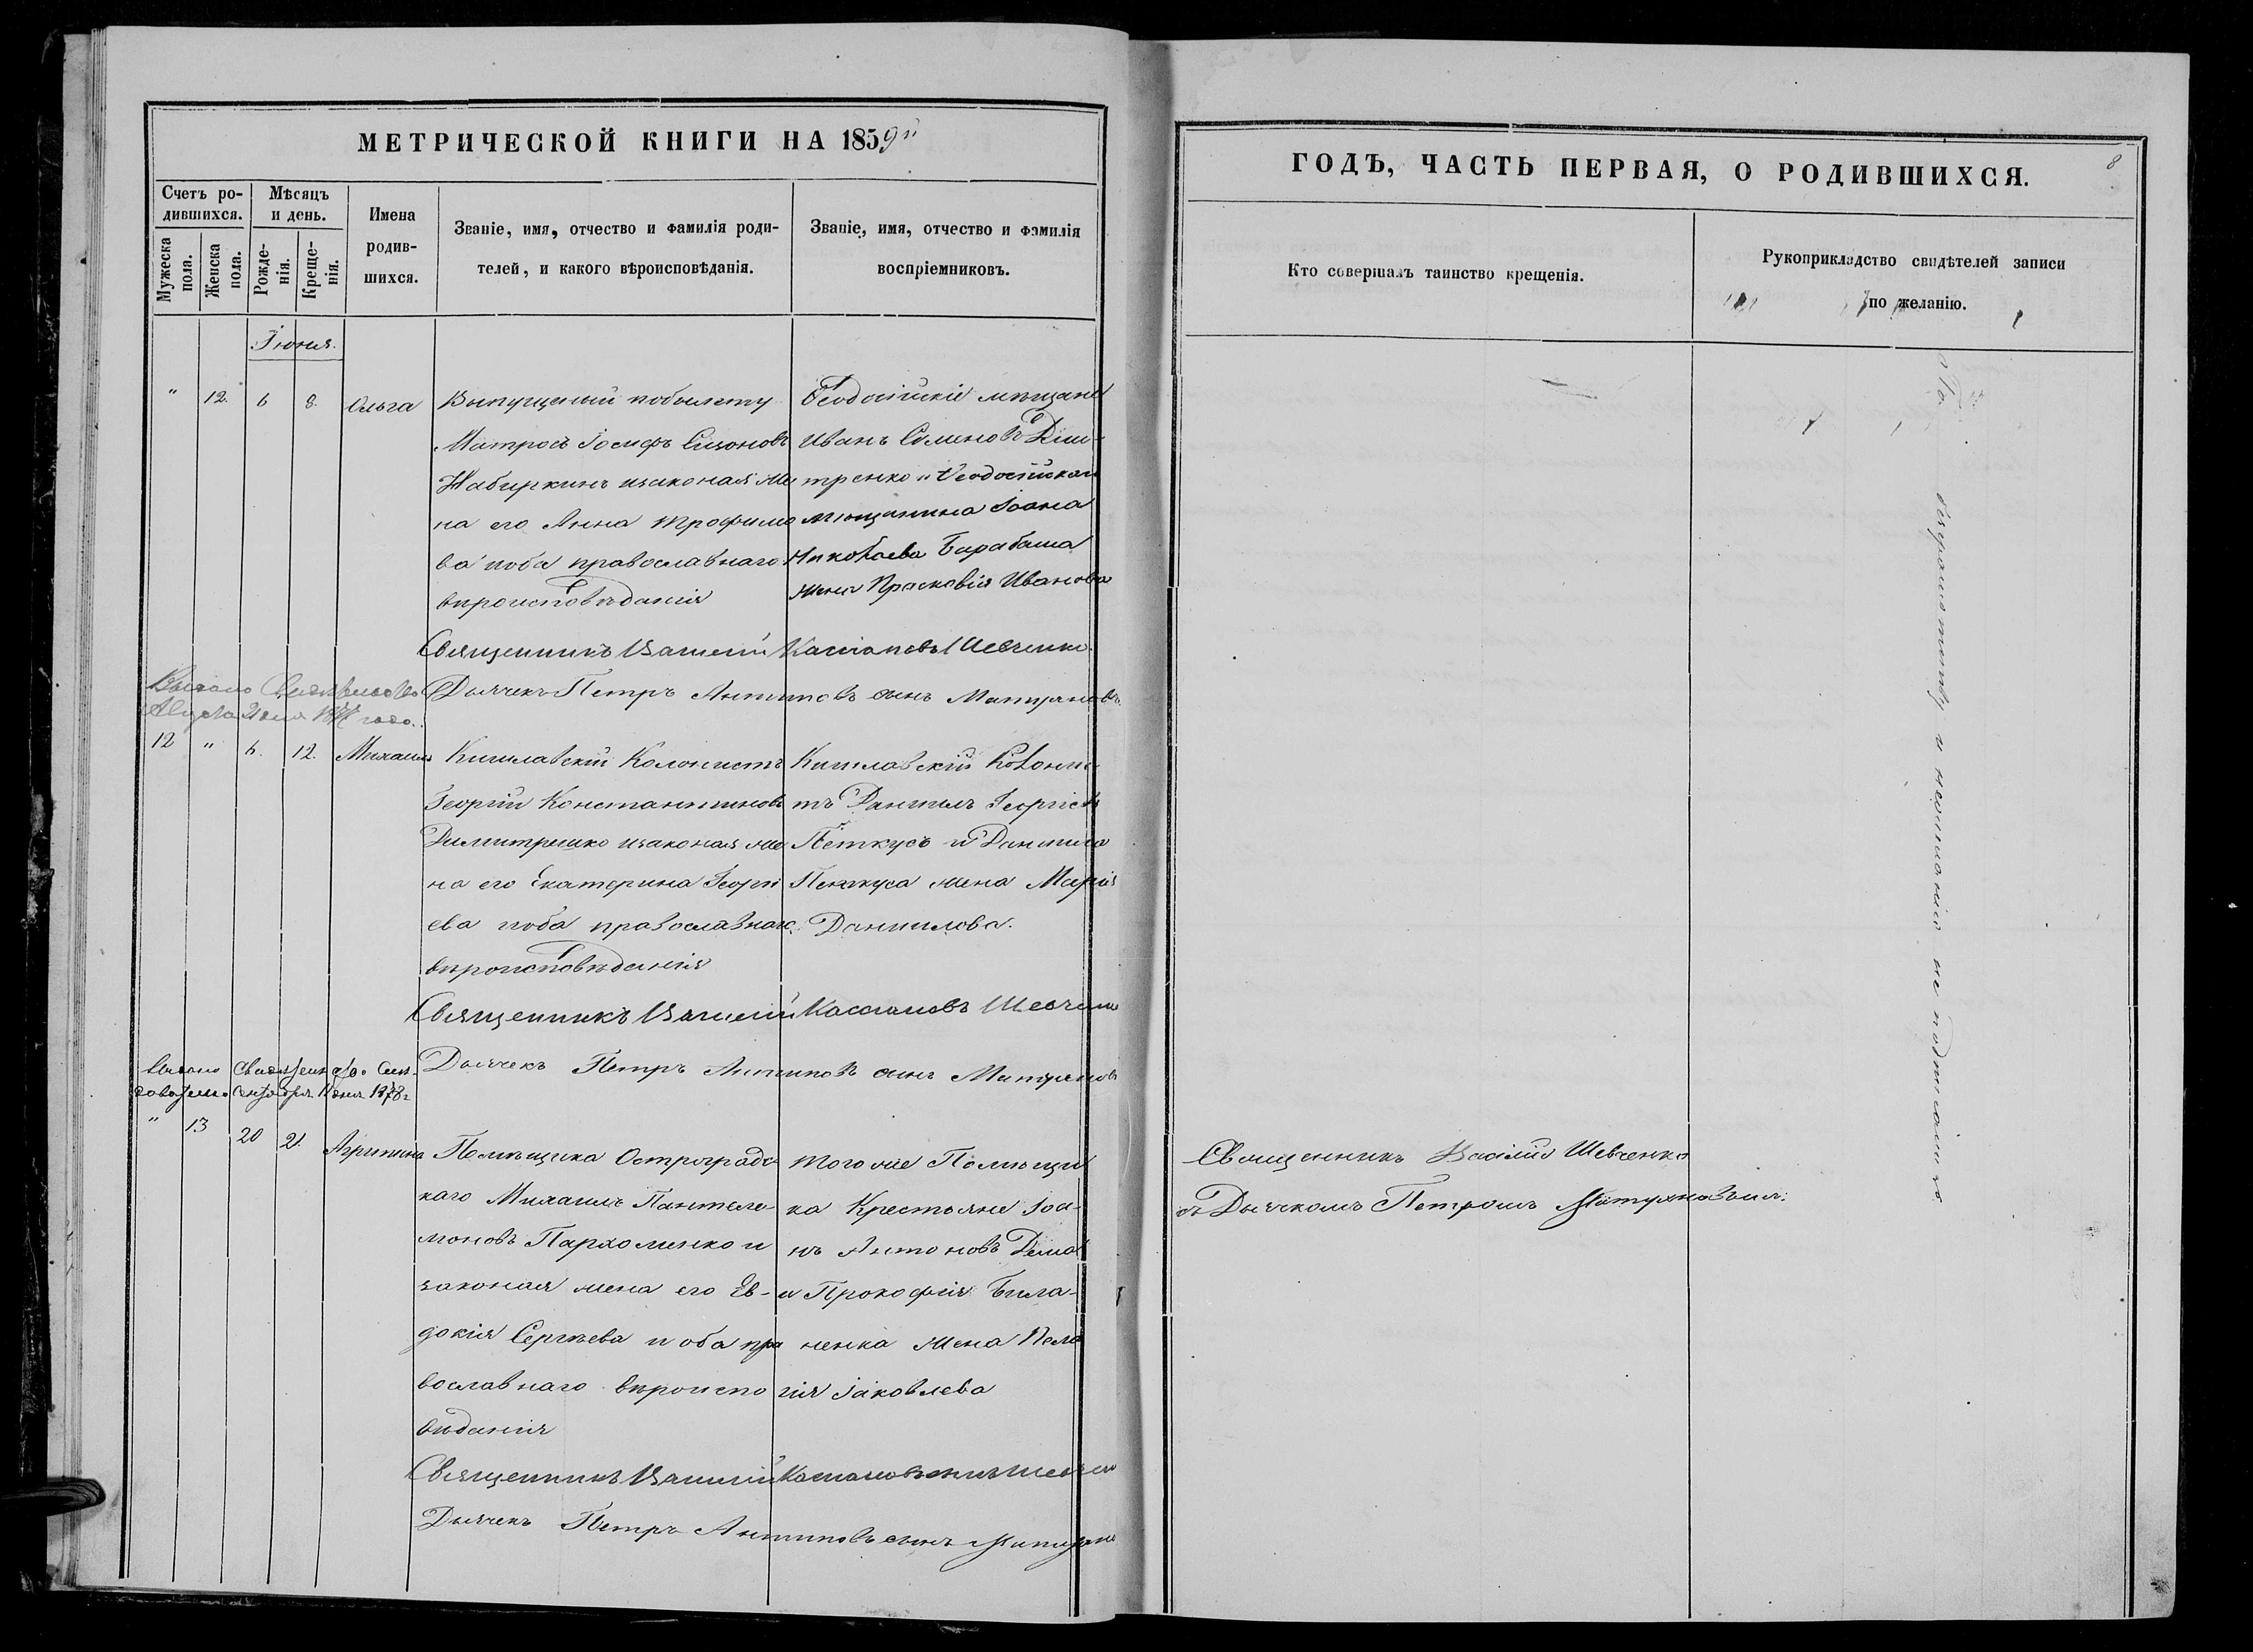 МЕТРИЧЕСКОЙ КНИГИ НА 1859й
Счетъ ро-
дившихся.
Мѣсяцъ
и день.
Имена
родив-
шихся.
Званіе, имя, отчество и фамилія роди-
телей, и какого вѣроисповѣданія.
Званіе, имя, отчество и фамилія
воспріемниковъ.
Мужеска
пола.
Женска
пола.
Рожде-
нія.
Креще-
нія.
Іюня.
" 12. 6 8. Ольга
Выпущеный побилету
Матросъ Іосифъ
изаконая же
на его Анна Трофимо
ва иоба православнаго
вѣроисповѣданія
Ѳеодосійскіе мѣщане
Иванъ Семеновъ Дми-
тренко и Ѳеодосійскаго
мѣщанина Іоана
Николаева Барабаша
жена Прасковія Иванова
Священникъ Василій Кассіановъ Шевченко.
Дьячекъ Петръ Антиповъ сынъ Матуяновъ.
Выдано Свидѣтельство
Августа
12 " 6. 12. Михаилъ
Кишлавскій Колонистъ
Георгій Константиновъ
Димитришко изаконая же
на его Екатерина Георгі
ева иоба православнаго.
вѣроисповѣданія
Кишлавскій Колонис-
тъ Даниилъ Георгіевъ
Петкусъ и Даниила
Петкуса жена Марія
Даниилова.
Священникъ Василій Кассіановъ Шевченко
Дьячекъ Петръ Антиповъ сынъ Матуяновъ
Выдано
" 13 20 21. Агрипина
Помѣщика Остроградс
каго Михаилъ Пантеле-
моновъ Пархоменко и
законая жена его Ев-
докія Сергѣева и оба пра
вославнаго вѣроиспо
вѣданія
того же Помѣщи
ка Крестьяне Іоа-
нъ Антоновъ
и Прокофія Била-
ненка жена Пела
гія Іаковлева
Священникъ Василій Кассіановъ сынъ Шевченко
Дьячекъ Петръ Антиповъ сынъ Матуяно
ГОДЪ, ЧАСТЬ ПЕРВАЯ, О РОДИВШИХСЯ.
8
Кто совершалъ таинство крещенія.
Рукоприкладство свидѣтелей записи
по желанію.
Священникъ Василій Шевченко
съ Дьячкомъ Петромъ Матуяновымъ.